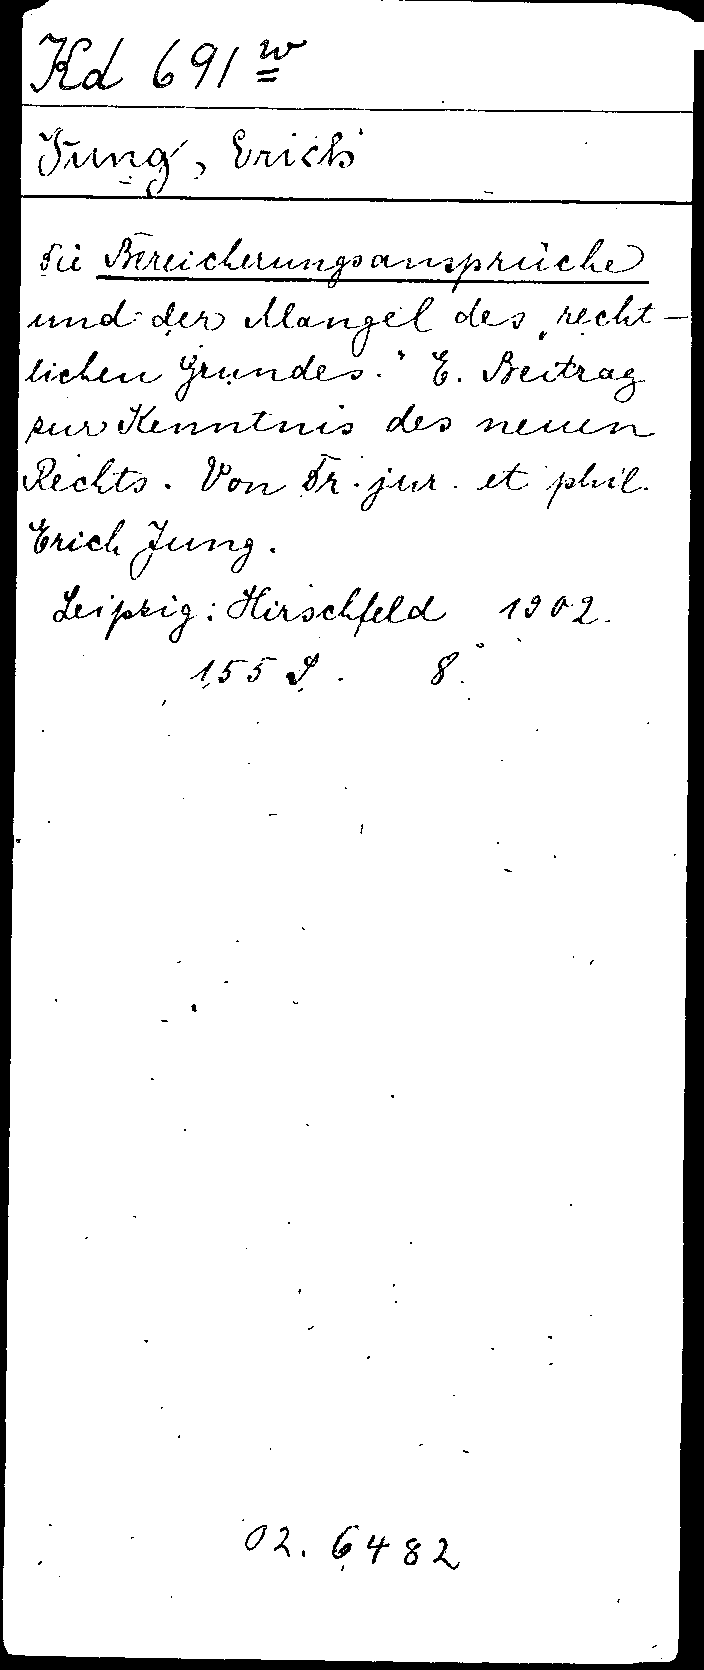 Kd 691 w
Jung, Erich
Die Bereicherungsansprüche
und der Mangel des „recht-
lichen Grundes.“ E. Beitrag
zur Kenntnis des neuen
Rechts. Von Dr. jur. et phil.
Erich Jung.
Leipzig: Hirschfeld 1902.
155 S. 8°.
02. 6482